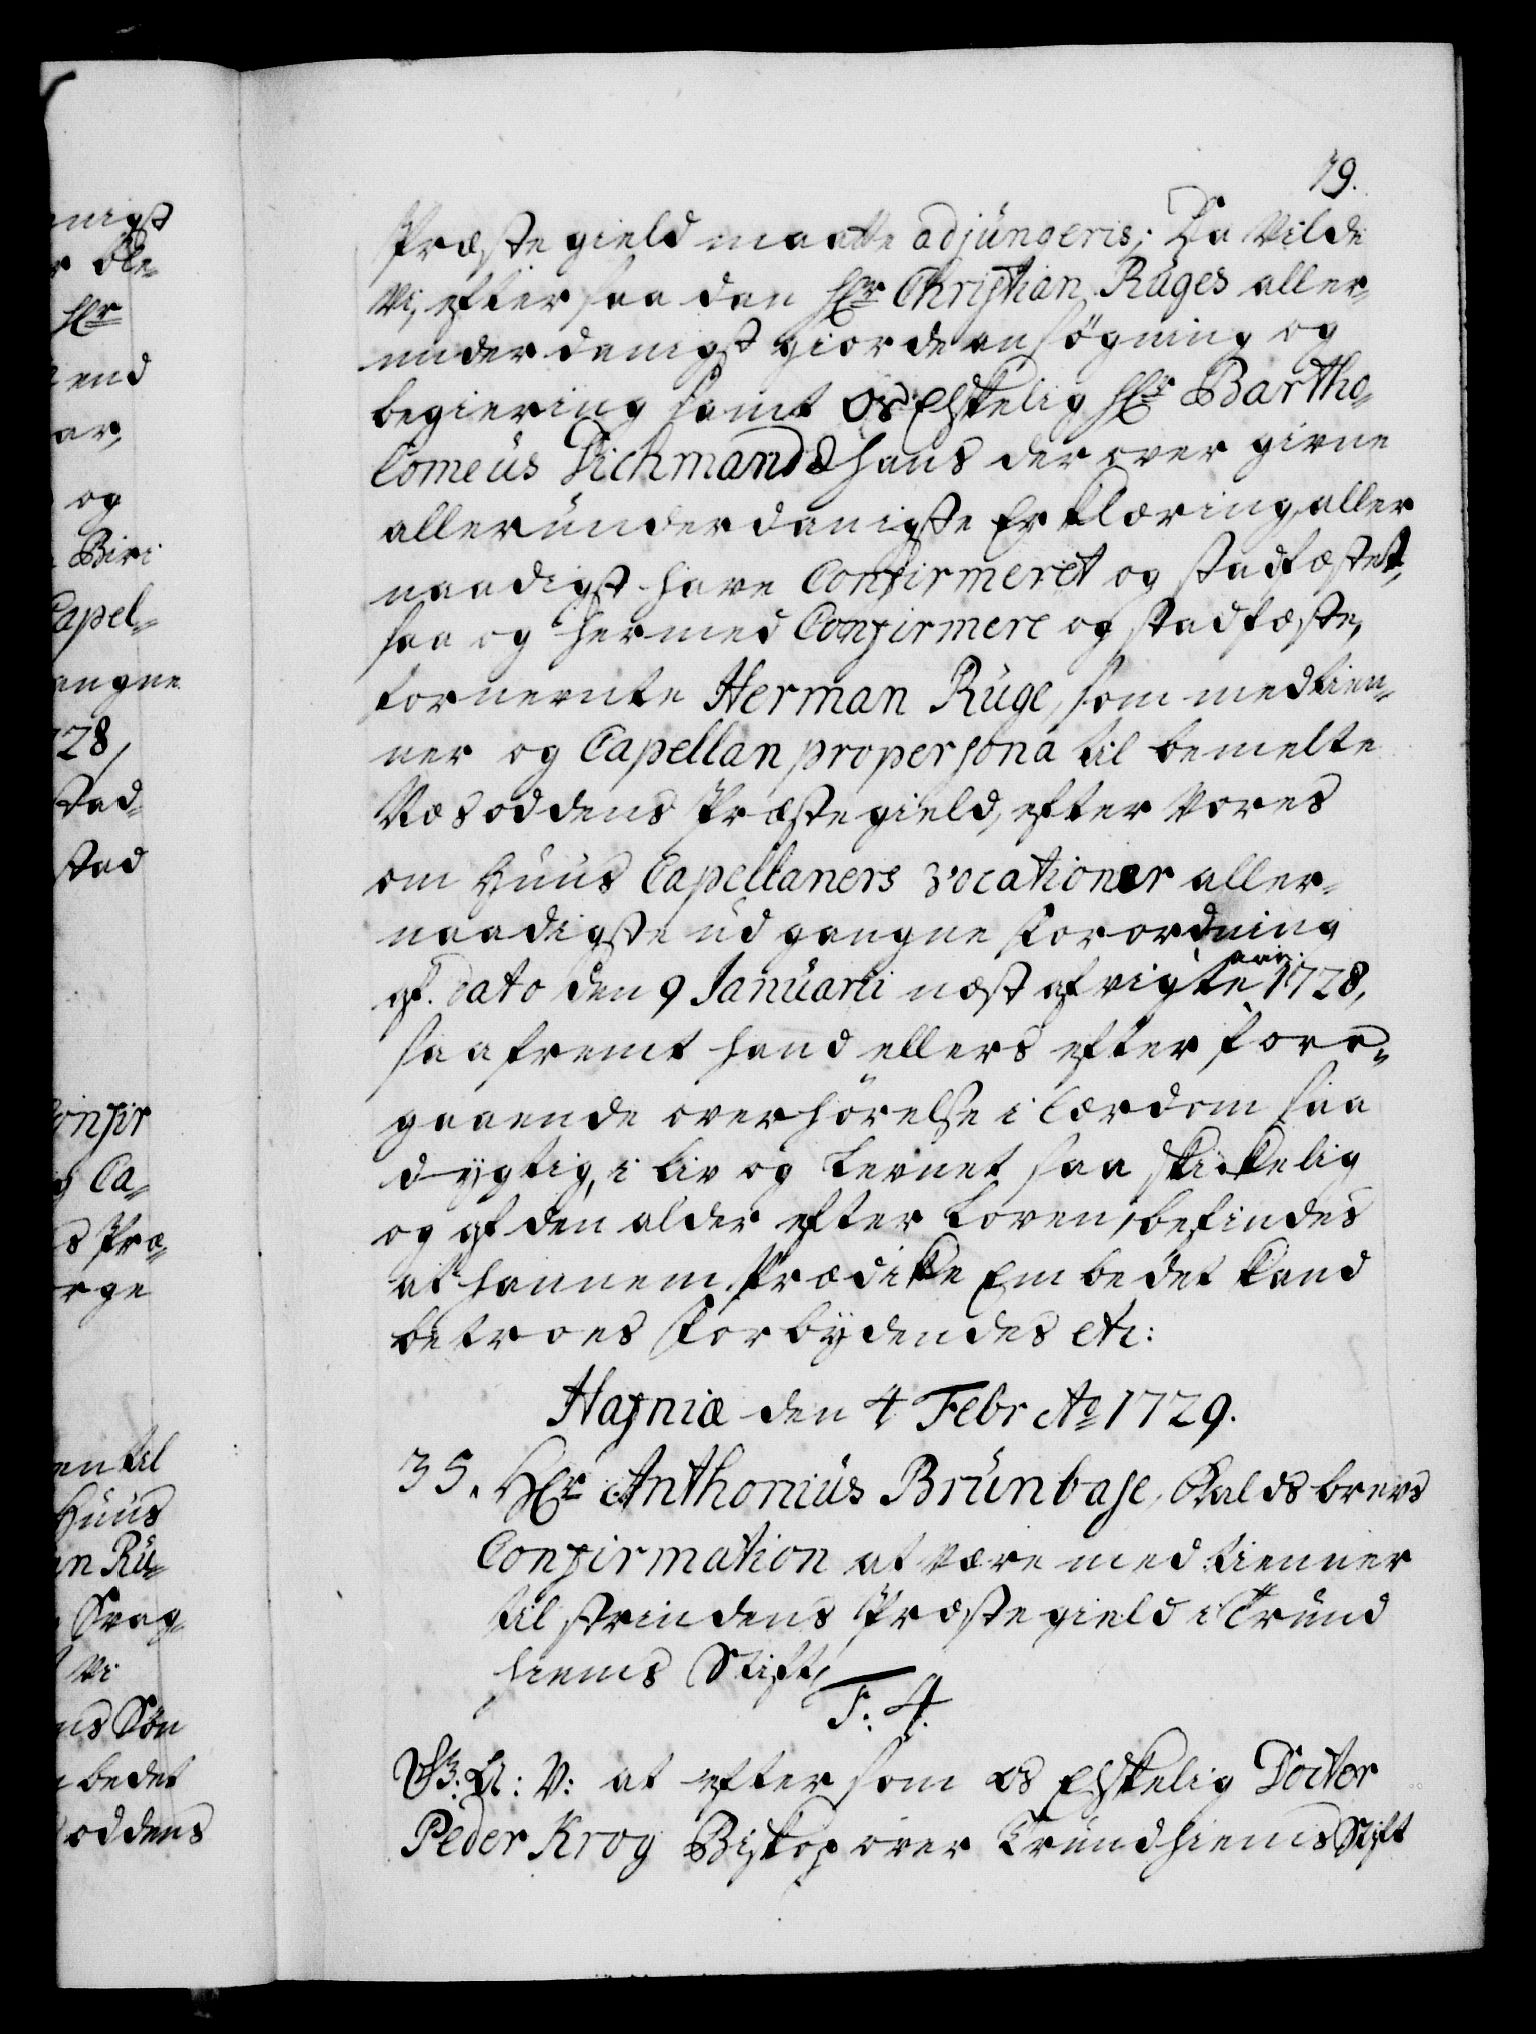 19.
Præstegield maatte adjungeris; Da Vilde
Vi, efter saa dan Hr Christian Ruges aller-
underdanigst giorde ansögning og
begiering samt os Elskelig Hr Bartho-
lomeus Dichmands hans der over givne
allerunderdanigste Erklæring, aller
naadigst have Confirmeret og stadfæstet,
saa og hermed Confirmere og stadfæste,
fornevnte Herman Ruge, som medtien-
ner og Capellan propersona til bemelte
Næsoddens Præstegield, efter Vores
om Huus Capellaners vocationer aller-
naadigste udgangne Forordning
af Dato den 9 Januarii næst afvigte aar 1728,
saafremt hand ellers efter fore-
gaaende overhörelse i Lærdom saa
dygtig, i Liv og Levnet saa skikkelig
og af den alder efter Loven, befindes
at hannem Prædike Embedet kand
betroes Forbydendes etc:
Hafniæ den 4 Febr Ao 1729.
35. Hr Anthonius Brunbase, Kalds brevs
Confirmation at være medtienner
til Strindens Præstegield i Trund
hiems Stift,
F. 4.
G: A: V: at eftersom os Elskelig Doctor
Peder Krog Biskop over Trundhiems Stift
nigst
Hr
end
ar,
og
Biri
Capel-
angne
728,
Stad-
stad
Confir
Ca-
Præ-
en til
Huus
n Ru-
Vi
ns Søn
bedet
oddens